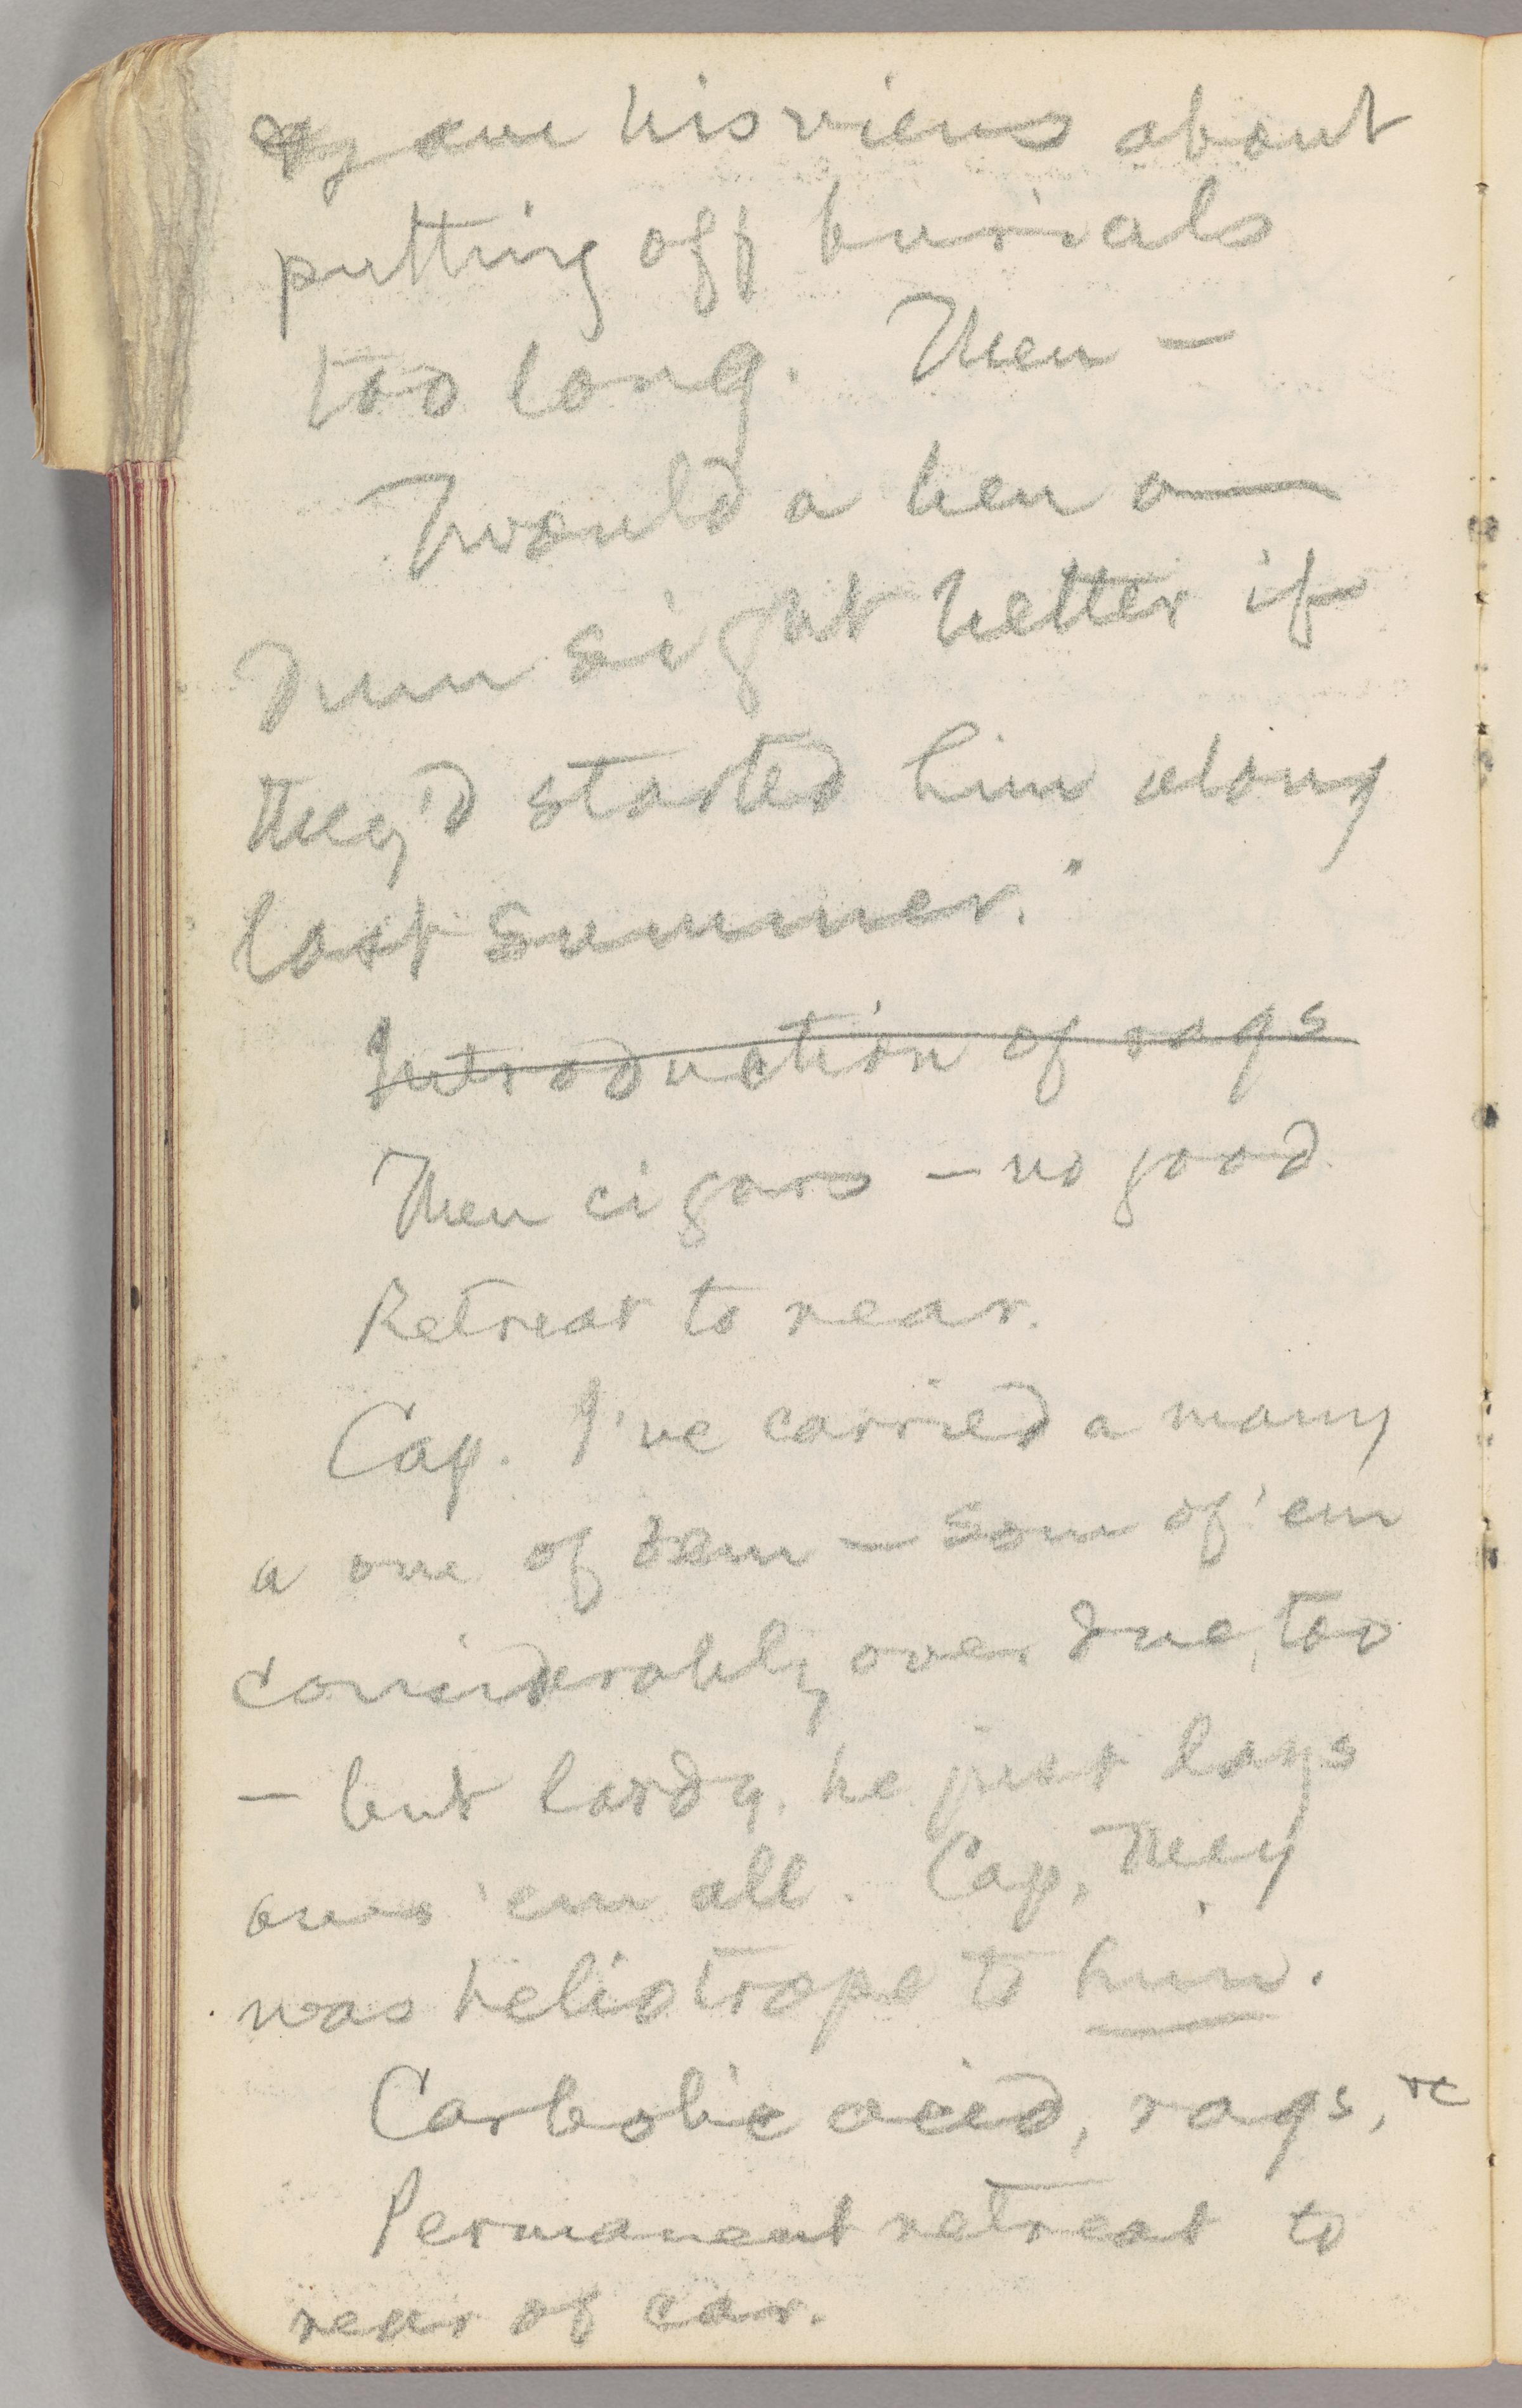 gave his views about
putting off burials
too long. Then —
Twould a ben a —
dum sight better if
they'd started him along
last summer."
Introduction of rags
Then cigars — no good
Retreat to rear.
Cap. I've carried a many
a one of dem — som of 'em
considerably over due, too
— but lordy, he just lays
over 'em all. Cap, they
was heliotrope to him.
Carbolic acid, rags, &c
Permanent retreat to
rear of car.